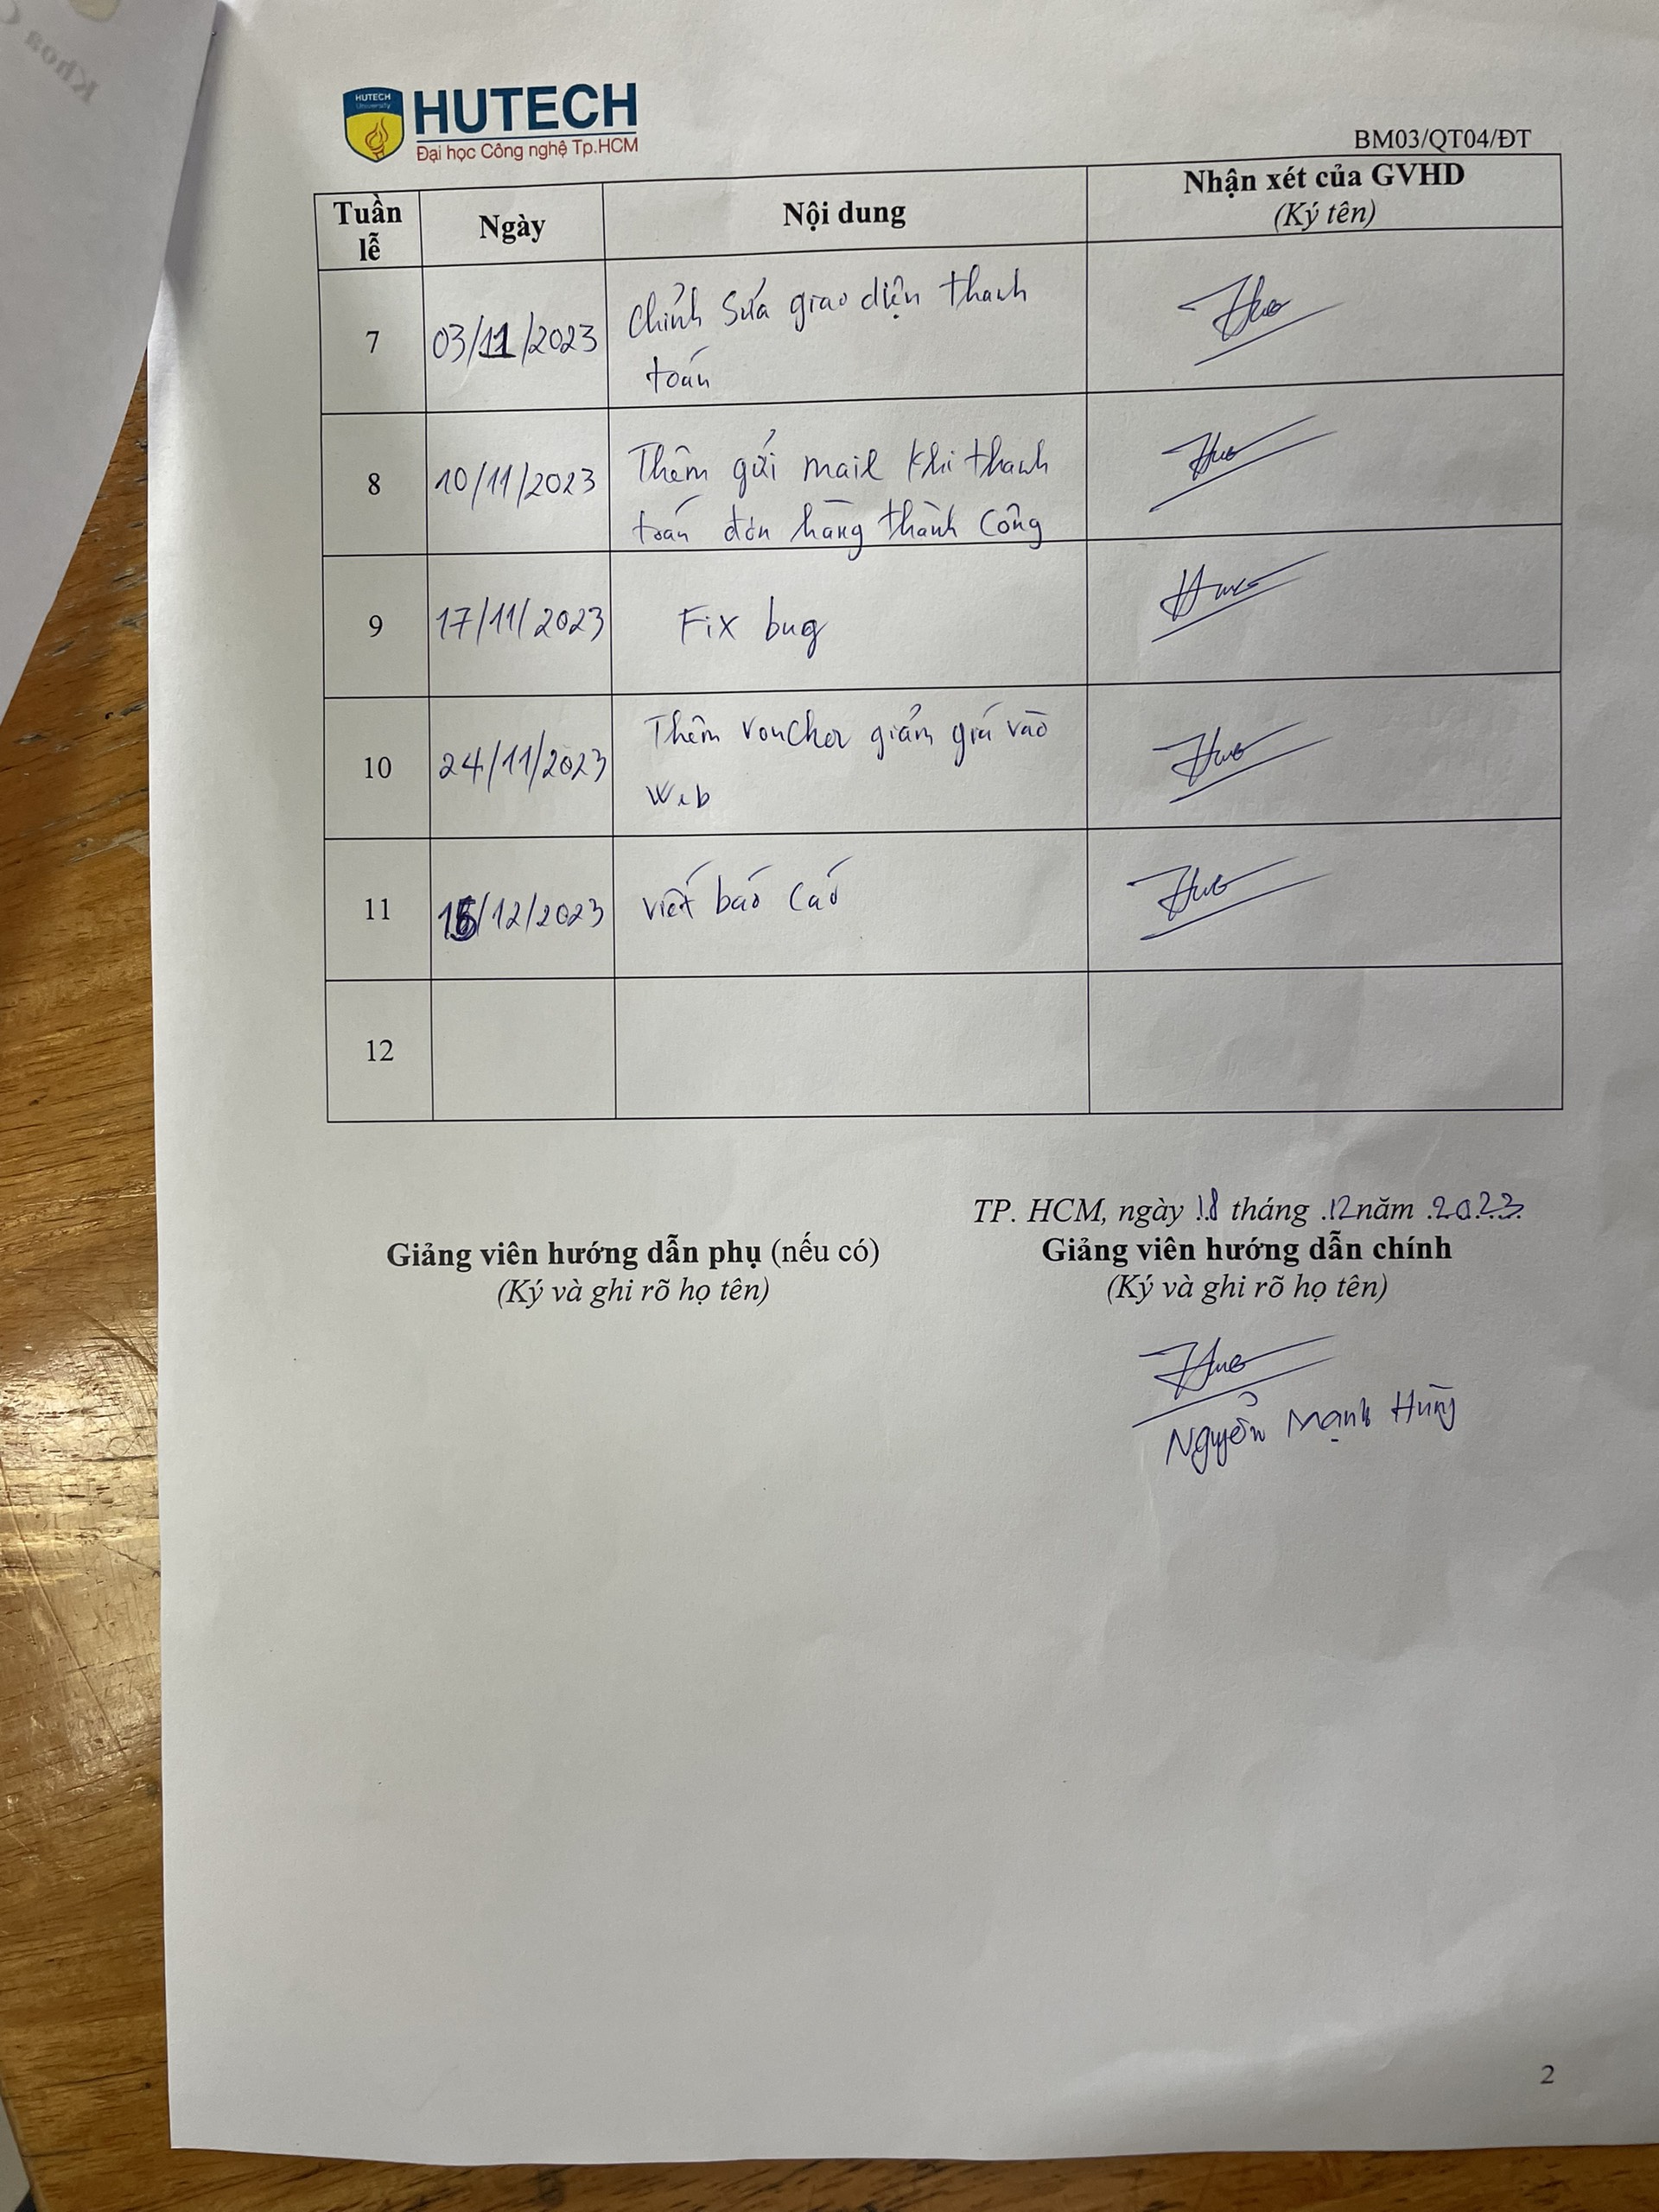 Khoa
HUTECH
University
HUTECH
Đại học Công nghệ Tp.HCM
BM03/QT04/ĐT
Tuần lễ
Ngày
Nội dung
Nhận xét của GVHD
(Ký tên)
7
03/11/2023
Chỉnh sửa giao diện thanh
toán
8
10/11/2023
Thêm gửi mail khi thanh
toán đơn hàng thành công
9
17/11/2023
Fix bug
10
24/11/2023
Thêm voucher giảm giá vào
Web
11
15/12/2023
viết báo cáo
12
TP. HCM, ngày 18 tháng 12 năm 2023
Giảng viên hướng dẫn phụ (nếu có)
(Ký và ghi rõ họ tên)
Giảng viên hướng dẫn chính
(Ký và ghi rõ họ tên)
Nguyễn Mạnh Hùng
2